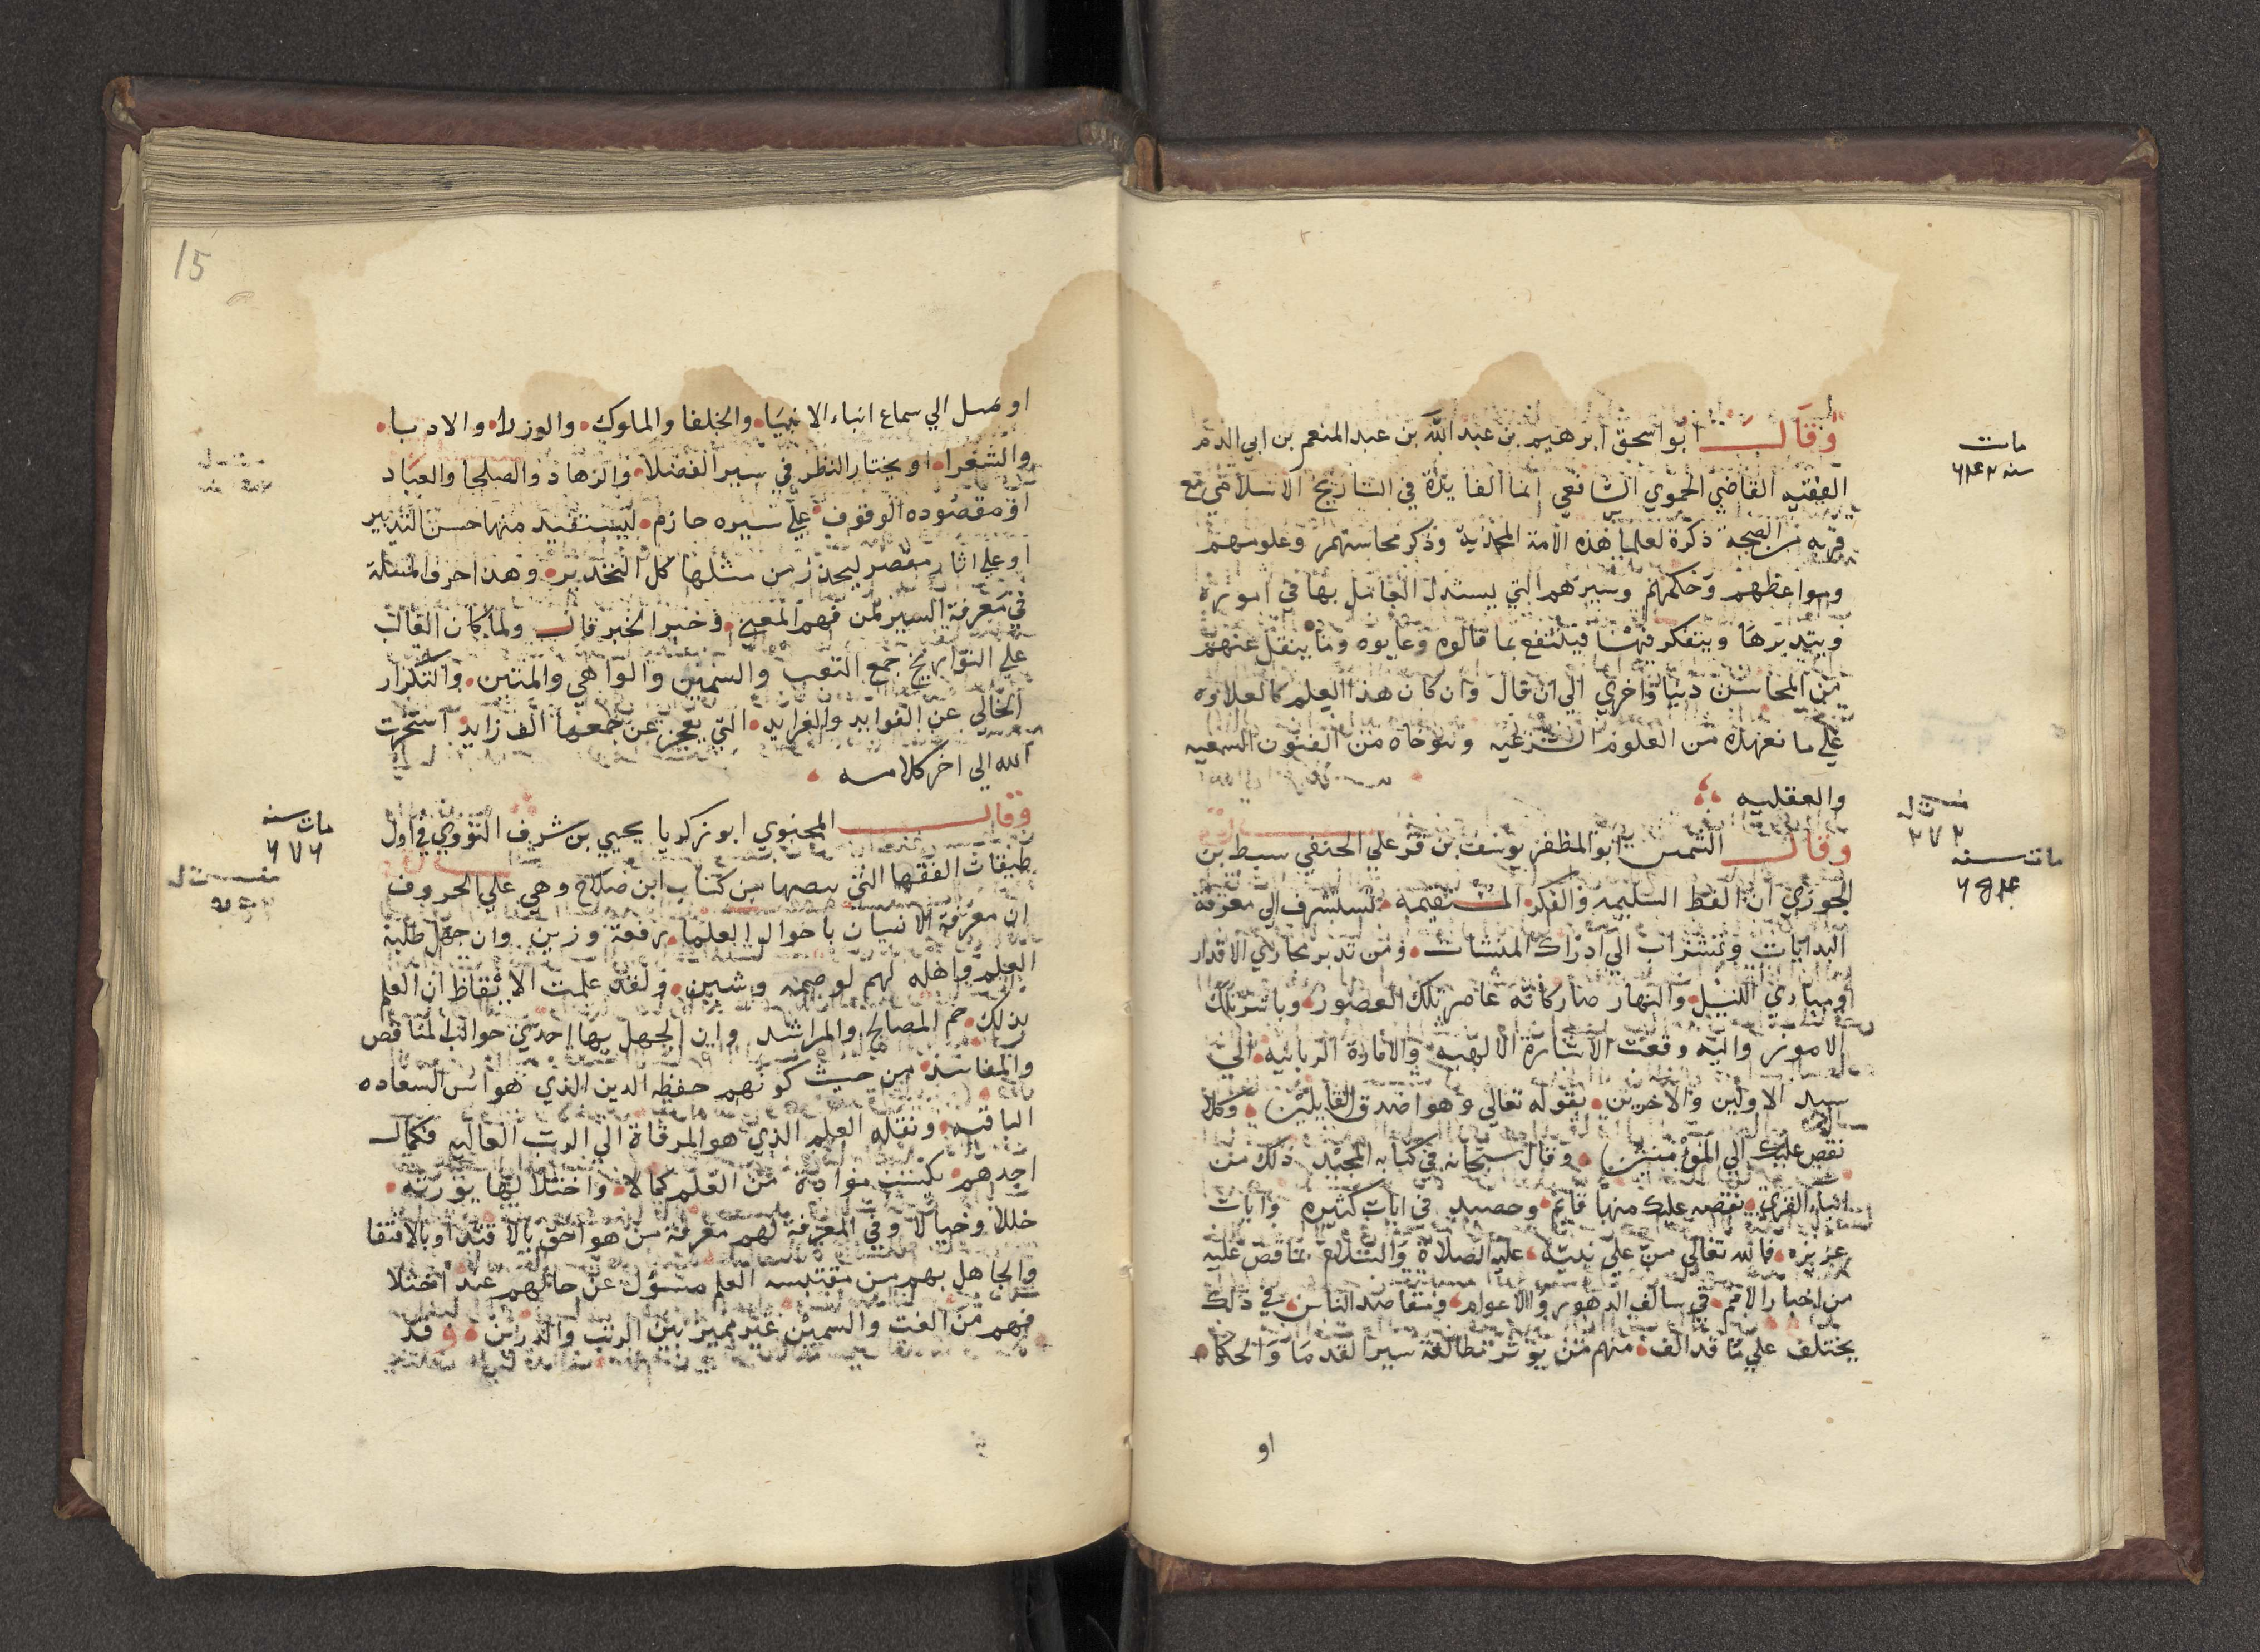 وقال ابو اسحق ابرهيم بن عبد الله بن عبد المنعم بن ابي الدم
الفقيه القاضي الحموي الشافعي انما الفايدة في التاريخ الاسلامي مع
قربه من الصحة ذكرة لعلما هذه الامة المحمدية وذكر محاسنهم وعلومهم
ومواعظهم وحكمهم وسيرهم التي يستدل العاقل بها في اموره
ويتدبرها ويتفكر فيها فينتفع بما قالوه وعابوه وما ينقل عنهم
من المحاسن دنيا واخري الي ان قال وان كان هذا العلم كالعلاوه
علي ما نعهده من العلوم الشرعيه ونتوخاه من الفنون السمعيه
والعقليه
وقال الشمس ابو المظفر يوسف بن قزعلي الحنفي سبط بن
الجوزي ان الفطر السليمه والفكر المستقيمة تستشرف الي معرفة
البدايات وتشراب الي ادراك المنشات ومن تدبر مجاري الاقدار
ومبادي الليل والنهار صار كانه عاصر تلك العصور وباشر تلك
الامور واليه وقعت الاشارة الالهيه والامارة الربانيه الي
سيد الاولين والاخرين بقوله تعالي وهو اصدق القايلين وكلا
نقص عليك الي المؤمنين وقال سبحانه في كتابه المجيد ذلك من
انباء القري نقصه عليك منها قايم وحصيد في ايات كثيره وايات
عزيزه فالله تعالي من علي نبيه عليه الصلاة والسلام بما قص عليه
من اخبار الامم في سالف الدهور والاعوام ومقاصد الناس في ذلك
يختلف علي ما قد الف منهم من يوثر مطالعة سير القدما والحكما
او
مات
سنه ٦٤٢
مات سنه
٦٥٤
15
او ميل الي سماع انباء الانبيا والخلفا والملوك والوزرا والادبا
والشعرا او يختار النظر في سير الفضلا والزهاد والصلحا والعباد
او مقصوده الوقوف علي سيره حازم ليستفيد منها حسن التدبير
او علي اثار مقصر ليحذر من مثلها كل التحذير وهذا احرف المسلة
في معرفة السير لمن فهم المعني وخبر الخبر قال ولما كان الغالب
علي التواريخ جمع الغث والسمين والواهي والمتين والتكرار
الخالي عن الفوايد والفرايد التي يعجز عن جمعها الف زايد استخرت
الله الي اخر كلامه
وقال المحيوي ابو زكريا يحيي بن شريف النووي في اول
طبقات الفقها التي بيضها من كتاب ابن صلاح وهي علي الحروف
ان معرفة الانسان باحوال العلما رفعة وزين وان جهل طلبة
العلم واهله لهم لوصمه وشين ولقد علمت الايقاظ ان العلم
بذلك جم المصالح والمراشد وان الجهل بها احدي جوالب المناقص
والمفاسد من حيث كونهم حفظه الدين الذي هو اس السعاده
الباقيه ونقله العلم الذي هو المرقاة الي الرتب العاليه فكمال
احدهم يكسب مواده من العلم كمالا واختلالها يورثه
خللا وخبالا وفي المعرفة لهم معرفة من هو احق بالاقتدا وبالاقتفا
والجاهل بهم من مقتبسه العلم مسؤل عن حالهم عند اختلا
فهم من الغث والسمين غير مميز بين الرتب والدرن وقد
مات سنه
٦٧٦